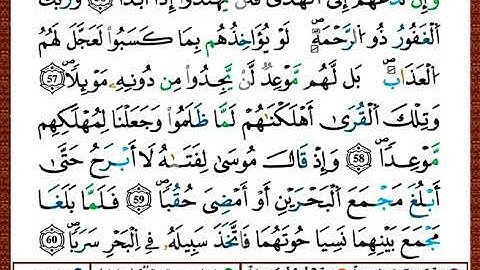 وَإِن تَدْعُهُمْ إِلَى الْهُدَىٰ فَلَن يَهْتَدُوا إِذًا أَبَدًا وَرَبُّكَ
الْغَفُورُ ذُو الرَّحْمَةِ ۖ لَوْ يُؤَاخِذُهُم بِمَا كَسَبُوا لَعَجَّلَ لَهُمُ
الْعَذَابَ ۚ بَل لَّهُم مَّوْعِدٌ لَّن يَجِدُوا مِن دُونِهِ مَوْئِلًا ٥٧
وَتِلْكَ الْقُرَىٰ أَهْلَكْنَٰهُمْ لَمَّا ظَلَمُوا وَجَعَلْنَا لِمُهْلَكِهِم
مَّوْعِدًا ٥٨ وَإِذْ قَالَ مُوسَىٰ لِفَتَىٰهُ لَا أَبْرَحُ حَتَّىٰ
أَبْلُغَ مَجْمَعَ الْبَحْرَيْنِ أَوْ أَمْضِيَ حُقُبًا ٥٩ فَلَمَّا بَلَغَا
مَجْمَعَ بَيْنِهِمَا نَسِيَا حُوتَهُمَا فَاتَّخَذَ سَبِيلَهُ فِي الْبَحْرِ سَرَبًا ٦٠